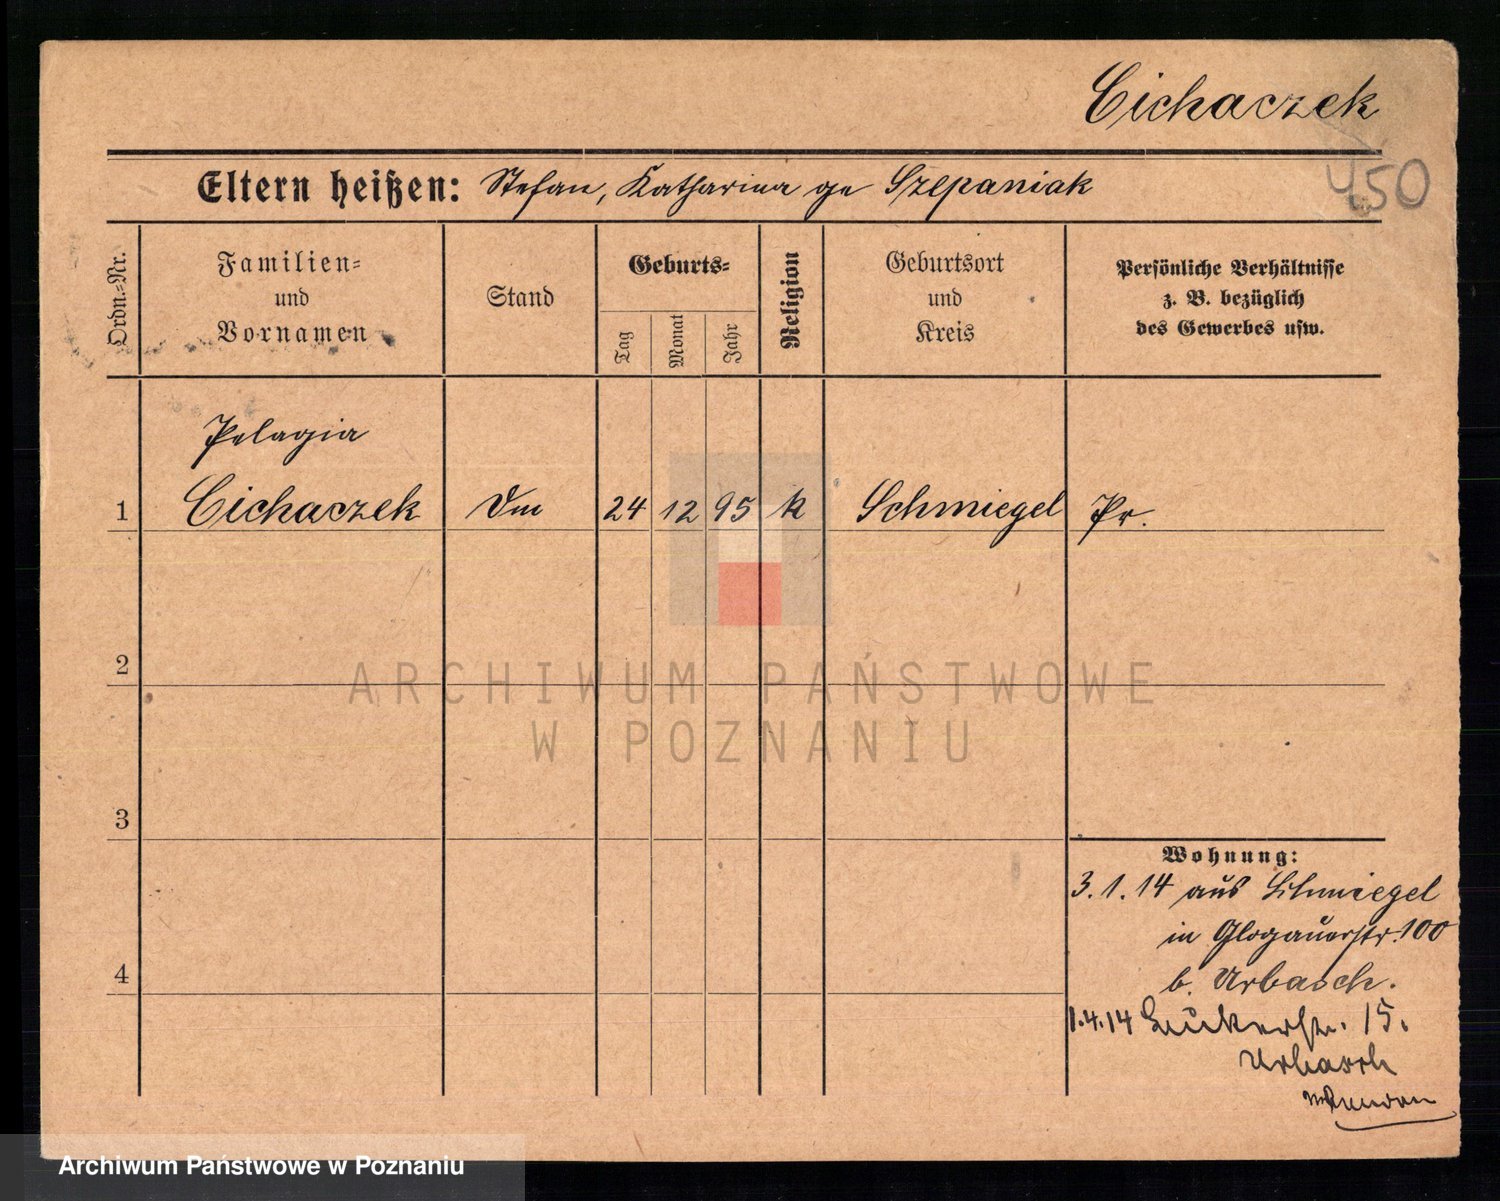 Cichaczek
450
Eltern heißen: Stefan, Katharina ge Szepaniak
Ordn.-Nr.
Familien-
und
Vornamen
Stand
Geburts-
Tag
Monat
Jahr
Religion
Geburtsort
und
Kreis
Persönliche Verhältnisse
z. B. bezüglich
des Gewerbes usw.
Pelagia
1 Cichaczek Dm 24 12 95 k Schmiegel Pr.
2
ARCHIWUM PAŃSTWOWE
W POZNANIU
3
Wohnung:
3.1.14 aus Schmiegel
in Glogauerstr. 100
b. Urbasch.
4
1.4.14 15.
Urbasch
Archiwum Państwowe w Poznaniu